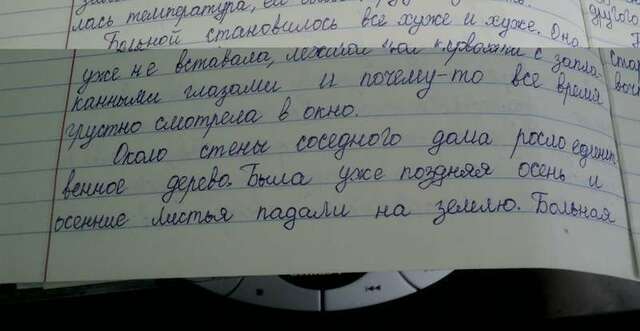 лась температура,
Больной становилось все хуже и хуже. Она
уже не вставала, лежала на кровати с запла-
канными глазами и почему-то все время
грустно смотрела в окно.
Около стены соседного дома росло единст
венное дерево. Была уже поздняя осень и
осенние листья падали на землю. Больная